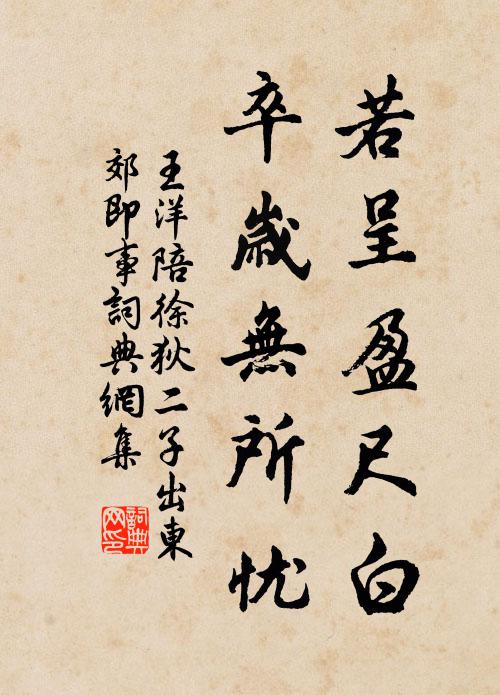 若呈盈尺白
卒歲無所忧
王洋陪徐狄二子出東
郊即事詞典網集
詞典
网印